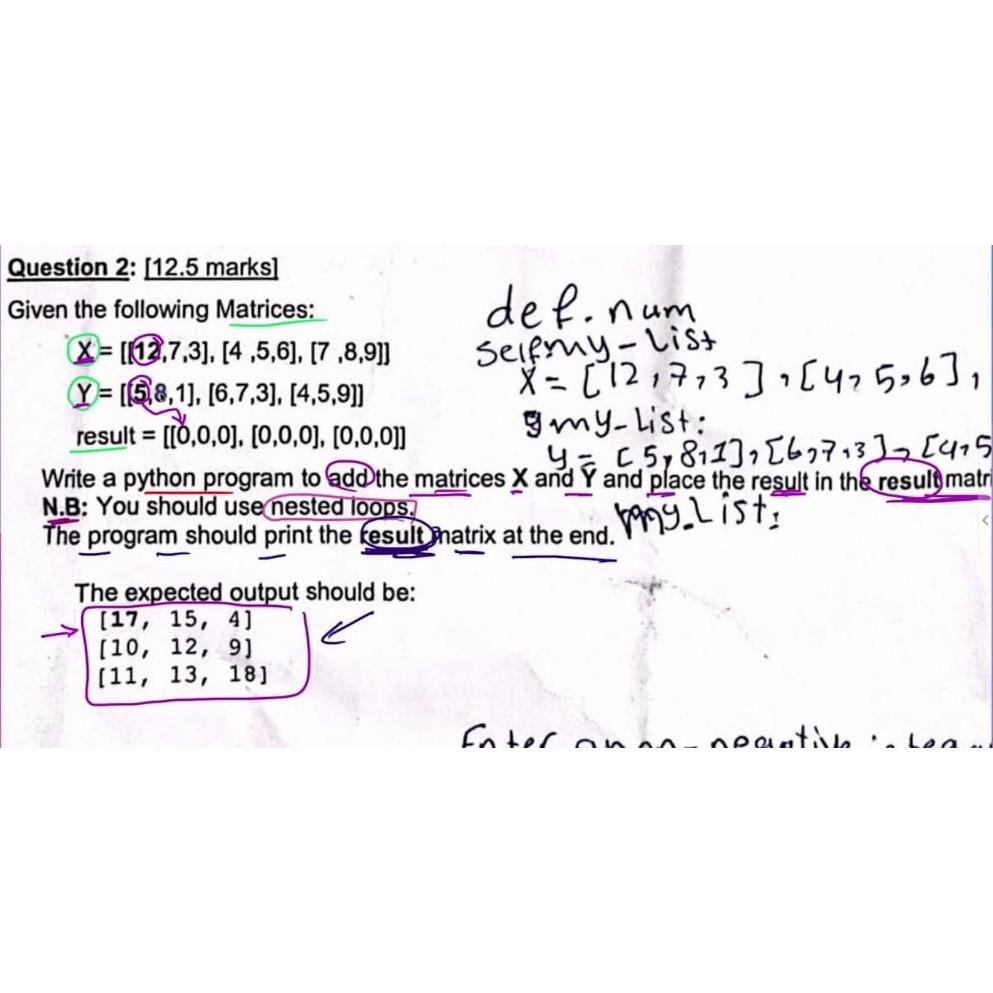 Question 2: [12.5 marks]
Given the following Matrices:
X = [[12,7,3], [4 ,5,6], [7 ,8,9]]
Y = [[5,8,1], [6,7,3], [4,5,9]]
result = [[0,0,0], [0,0,0], [0,0,0]]
def. num
selfmy-List
X = [12,7,3], [4,5,6],
my-List:
y = [5,8,1], [6,7,3], [4,5
Write a python program to add the matrices X and Y and place the result in the result matri
N.B: You should use nested loops.
my_List:
The program should print the result matrix at the end.
The expected output should be:
[17, 15, 4]
[10, 12, 9]
[11, 13, 18]
Enter a non-negative